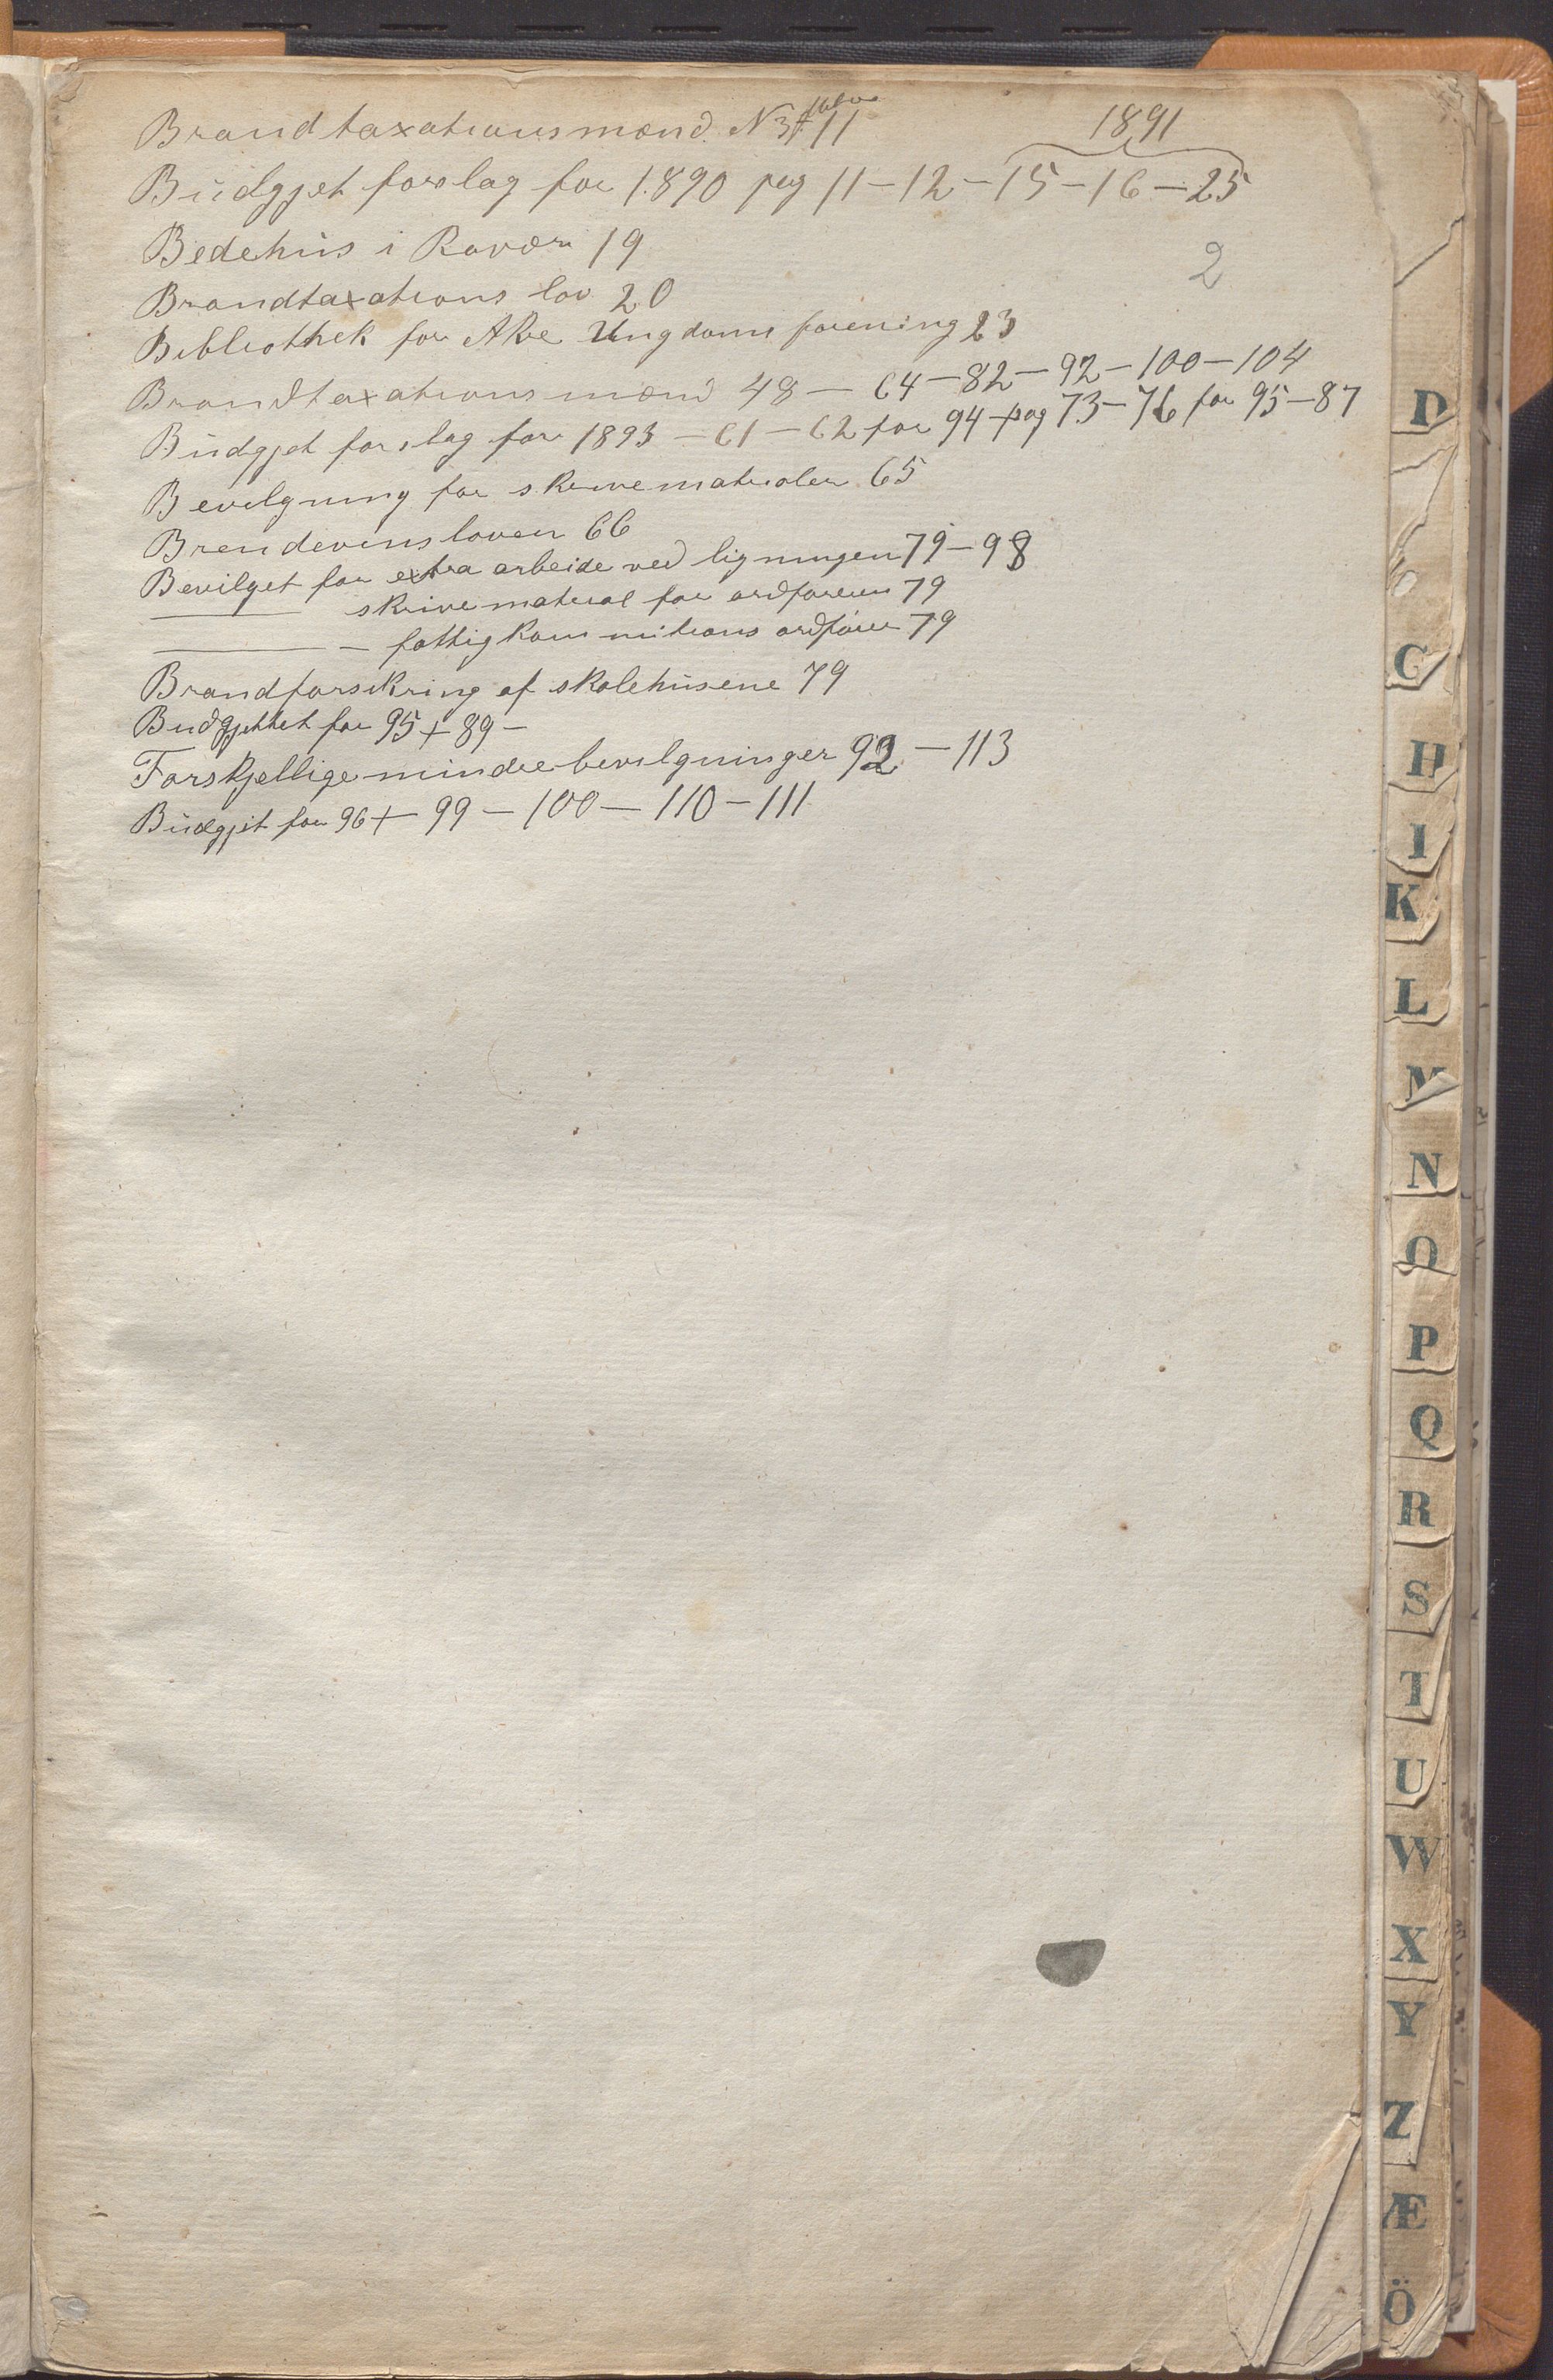 Brandtaxationsmænd N 3 + 11
1891
Büdgjet forslag for 1890 pag 11 – 12 – 15 – 16 – 25
Bedehüs i Røvær 19
2
Brandtaxations lov 20
Bibliothek for Ake Ungdoms forening 23
Brandtaxationsmænd 48 – 64 – 82 – 92 – 100 – 104
Büdgjet forslag for 1893 – 61 – 62 for 94 pag 73 – 76 for 95 – 87
Bevilgning for skrivematerialer 65
Brendevinsloven 66
Bevilget for extra arbeide ved ligningen 79 – 98
—— skrivematerial for ordføreren 79
—— – fattigkommitions ordfører 79
Brandforsikring af skolehüsene 79
Budgjettet for 95 + 89 –
Forskjellige mindre bevilgninger 92 – 113
Büdgjet for 96 + 99 – 100 – 110 – 111
D
C
H
I
K
L
M
N
O
P
Q
R
S
T
U
W
X
Y
Z
Æ
Ö